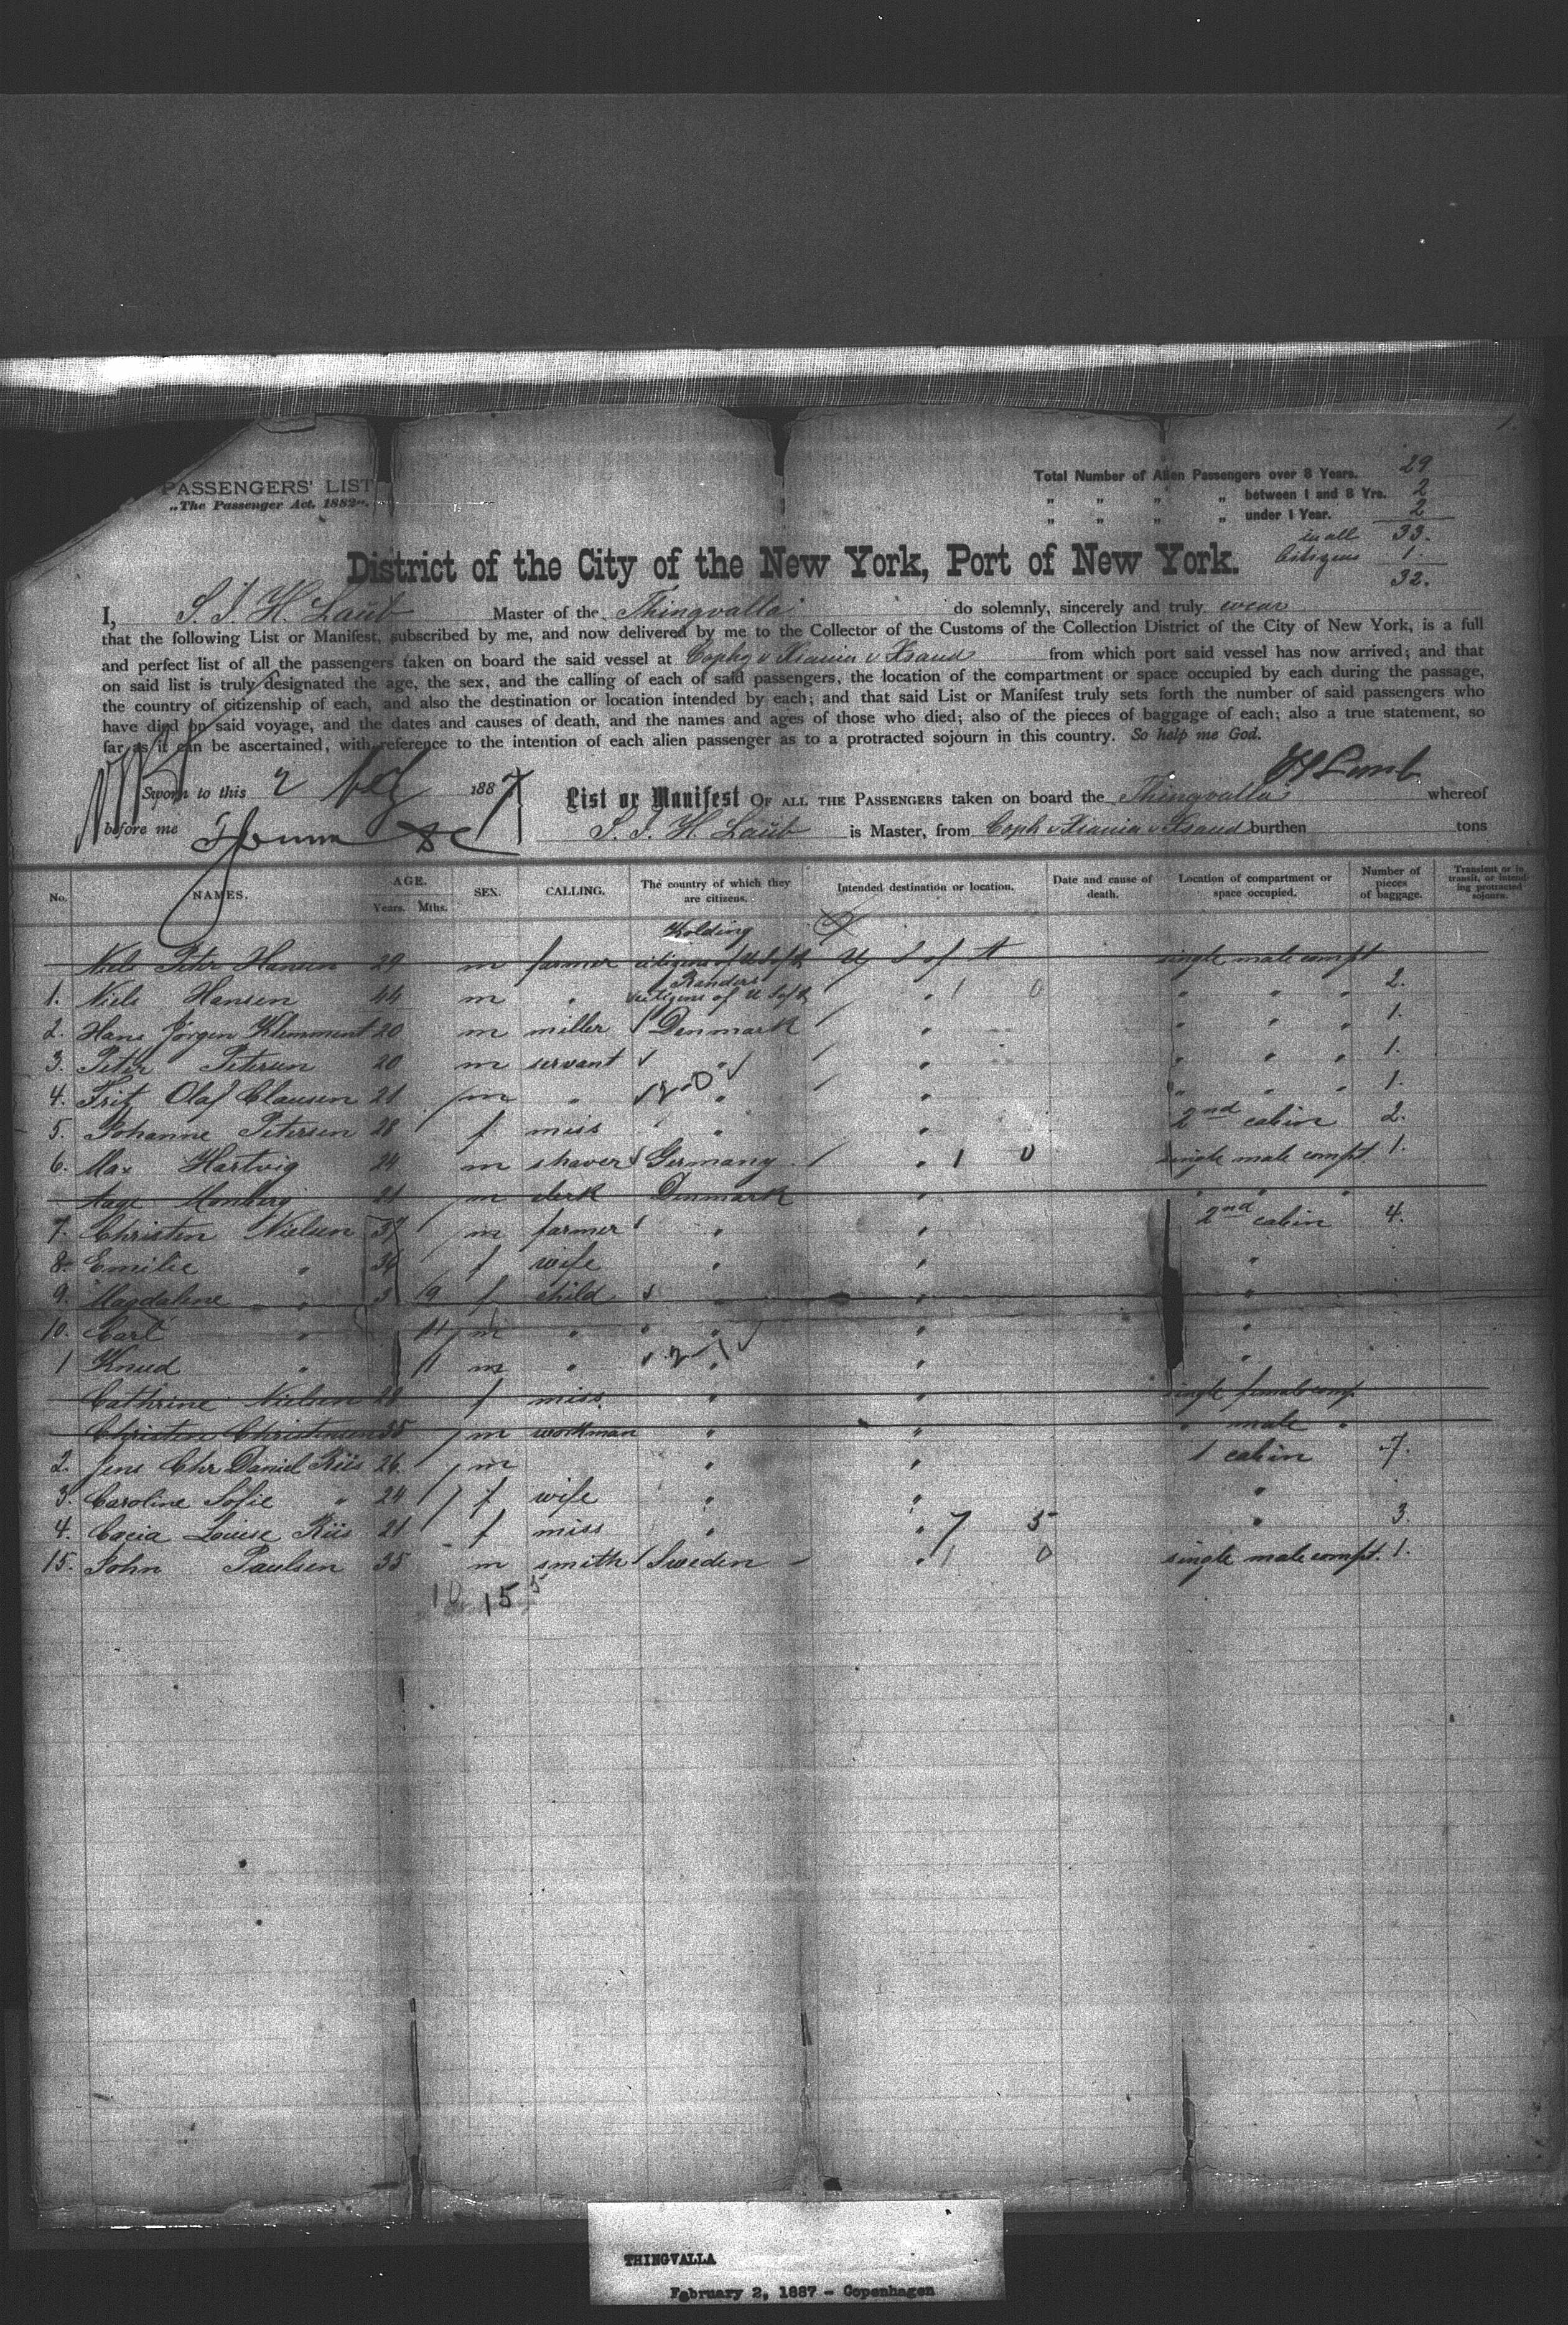 1.
PASSENGERS' LIST
„The Passenger Act, 1882".
Total Number of Alien Passengers over 8 Years. 29
„ „ „ „ between 1 and 8 Yrs. 2
„ „ „ „ under 1 Year. 2
in all 33.
Citizens 1.
32.
District of the City of the New York, Port of New York.
I, S. J. H. Laub Master of the Thingvalla do solemnly, sincerely and truly swear
that the following List or Manifest, subscribed by me, and now delivered by me to the Collector of the Customs of the Collection District of the City of New York, is a full
and perfect list of all the passengers taken on board the said vessel at Cophg v Xiania v Xsand from which port said vessel has now arrived; and that
on said list is truly designated the age, the sex, and the calling of each of said passengers, the location of the compartment or space occupied by each during the passage,
the country of citizenship of each, and also the destination or location intended by each; and that said List or Manifest truly sets forth the number of said passengers who
have died on said voyage, and the dates and causes of death, and the names and ages of those who died; also of the pieces of baggage of each; also a true statement, so
far as it can be ascertained, with reference to the intention of each alien passenger as to a protracted sojourn in this country. So help me God.
Sworn to this 2 1887
before me
List or Manifest OF ALL THE PASSENGERS taken on board the Thingvalla whereof
S. J. H. Laub is Master, from Coph v Xiania v Xsand burthen tons
No. NAMES. AGE. Years. Mths. SEX. CALLING. The country of which they are citizens. Intended destination or location. Date and cause of death. Location of compartment or space occupied. Number of pieces of baggage. Transient or in transit, or intending protracted sojourn.
Kolding
Niels Peter Hansen 29 m farmer citizens of U S of A U S of A single male compt
Randers
1. Niels Hansen 44 m " citizens of U S of A " 1 0 " " " 2.
2. Hans Jörgen Klemment 20 m miller Denmark " " " " 1.
3. Peter Petersen 20 m servant " " " " " 1.
4. Fritz Olaf Clausen 21 m " " " " " " 1.
5. Johanne Petersen 28 f miss " " 2nd cabin 2.
6. Max Hartvig 24 m shaver Germany " 1 0 single male compt 1.
Aage Monberg 21 m clerk Denmark " " " "
7. Christen Nielsen 37 m farmer " " 2nd cabin 4.
8. Emilie " 34 f wife " " "
9. Magdalene " 3 9 f child " " "
10. Carl " 11 m " " " "
1 Knud " 11 m " " " "
Cathrine Nielsen 28 f miss " " single female comp.
Christen Christensen 35 m workman " " " male "
2. Jens Chr Daniel Riis 26. m " " 1 cabin 7.
3. Caroline Sofie " 24 f wife " " "
4. Cacia Louise Riis 21 f miss " " 7 5 " 3.
15. John Paulsen 35 m smith Sweden " 1 0 single male compt. 1.
10 15 5
THINGVALLA
February 2, 1887 - Copenhagen